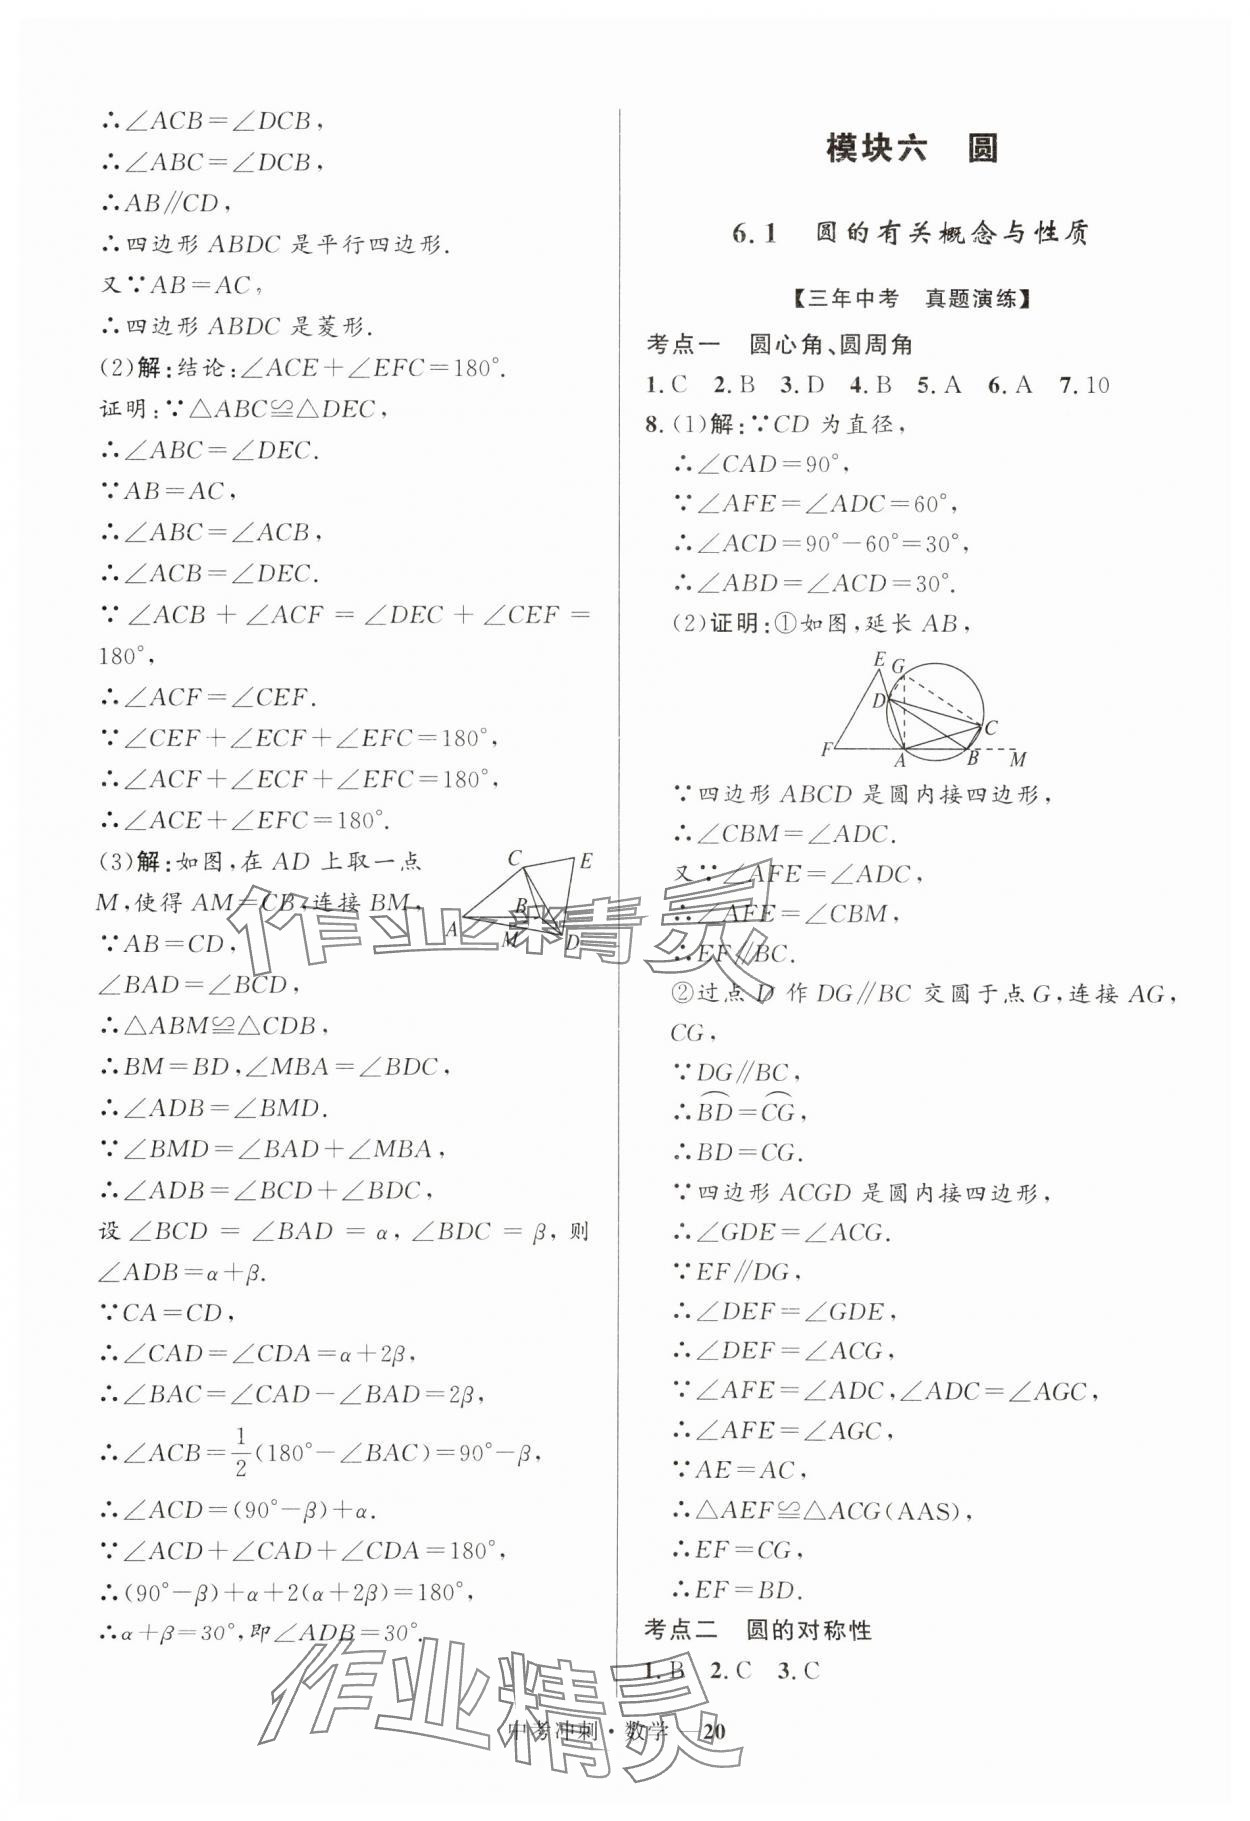 ∴∠ACB=∠DCB,
∴∠ABC=∠DCB,
∴AB∥CD,
∴四边形 ABDC 是平行四边形.
又∵AB=AC,
∴四边形 ABDC 是菱形.
(2)解:结论:∠ACE+∠EFC=180°.
证明:∵△ABC≌△DEC,
∴∠ABC=∠DEC.
∵AB=AC,
∴∠ABC=∠ACB,
∴∠ACB=∠DEC.
∵∠ACB+∠ACF=∠DEC+∠CEF=
180°,
∴∠ACF=∠CEF.
∵∠CEF+∠ECF+∠EFC=180°,
∴∠ACF+∠ECF+∠EFC=180°,
∴∠ACE+∠EFC=180°.
(3)解:如图,在 AD 上取一点
M,使得 AM=CB,连接 BM,
∵AB=CD,
∠BAD=∠BCD,
C E
B
A M D
∴△ABM≌△CDB,
∴BM=BD,∠MBA=∠BDC,
∴∠ADB=∠BMD.
∵∠BMD=∠BAD+∠MBA,
∴∠ADB=∠BCD+∠BDC,
设∠BCD=∠BAD=α,∠BDC=β,则
∠ADB=α+β.
∵CA=CD,
∴∠CAD=∠CDA=α+2β,
∴∠BAC=∠CAD-∠BAD=2β,
∴∠ACB=1/2(180°-∠BAC)=90°-β,
∴∠ACD=(90°-β)+α.
∵∠ACD+∠CAD+∠CDA=180°,
∴(90°-β)+α+2(α+2β)=180°,
∴α+β=30°,即∠ADB=30°.
模块六 圆
6.1 圆的有关概念与性质
【三年中考 真题演练】
考点一 圆心角、圆周角
1.C 2.B 3.D 4.B 5.A 6.A 7.10
8.(1)解:∵CD 为直径,
∴∠CAD=90°,
∵∠AFE=∠ADC=60°,
∴∠ACD=90°-60°=30°,
∴∠ABD=∠ACD=30°.
(2)证明:①如图,延长 AB,
E G
D
C
F A B M
∵四边形 ABCD 是圆内接四边形,
∴∠CBM=∠ADC.
又∵∠AFE=∠ADC,
∴∠AFE=∠CBM,
∴EF∥BC.
②过点 D 作 DG∥BC 交圆于点 G,连接 AG,
CG,
∵DG∥BC,
∴⌒BD=⌒CG,
∴BD=CG.
∵四边形 ACGD 是圆内接四边形,
∴∠GDE=∠ACG.
∵EF∥DG,
∴∠DEF=∠GDE,
∴∠DEF=∠ACG,
∵∠AFE=∠ADC,∠ADC=∠AGC,
∴∠AFE=∠AGC.
∵AE=AC,
∴△AEF≌△ACG(AAS),
∴EF=CG,
∴EF=BD.
考点二 圆的对称性
1.B 2.C 3.C
中考冲刺·数学—20
作业精灵
作业精灵